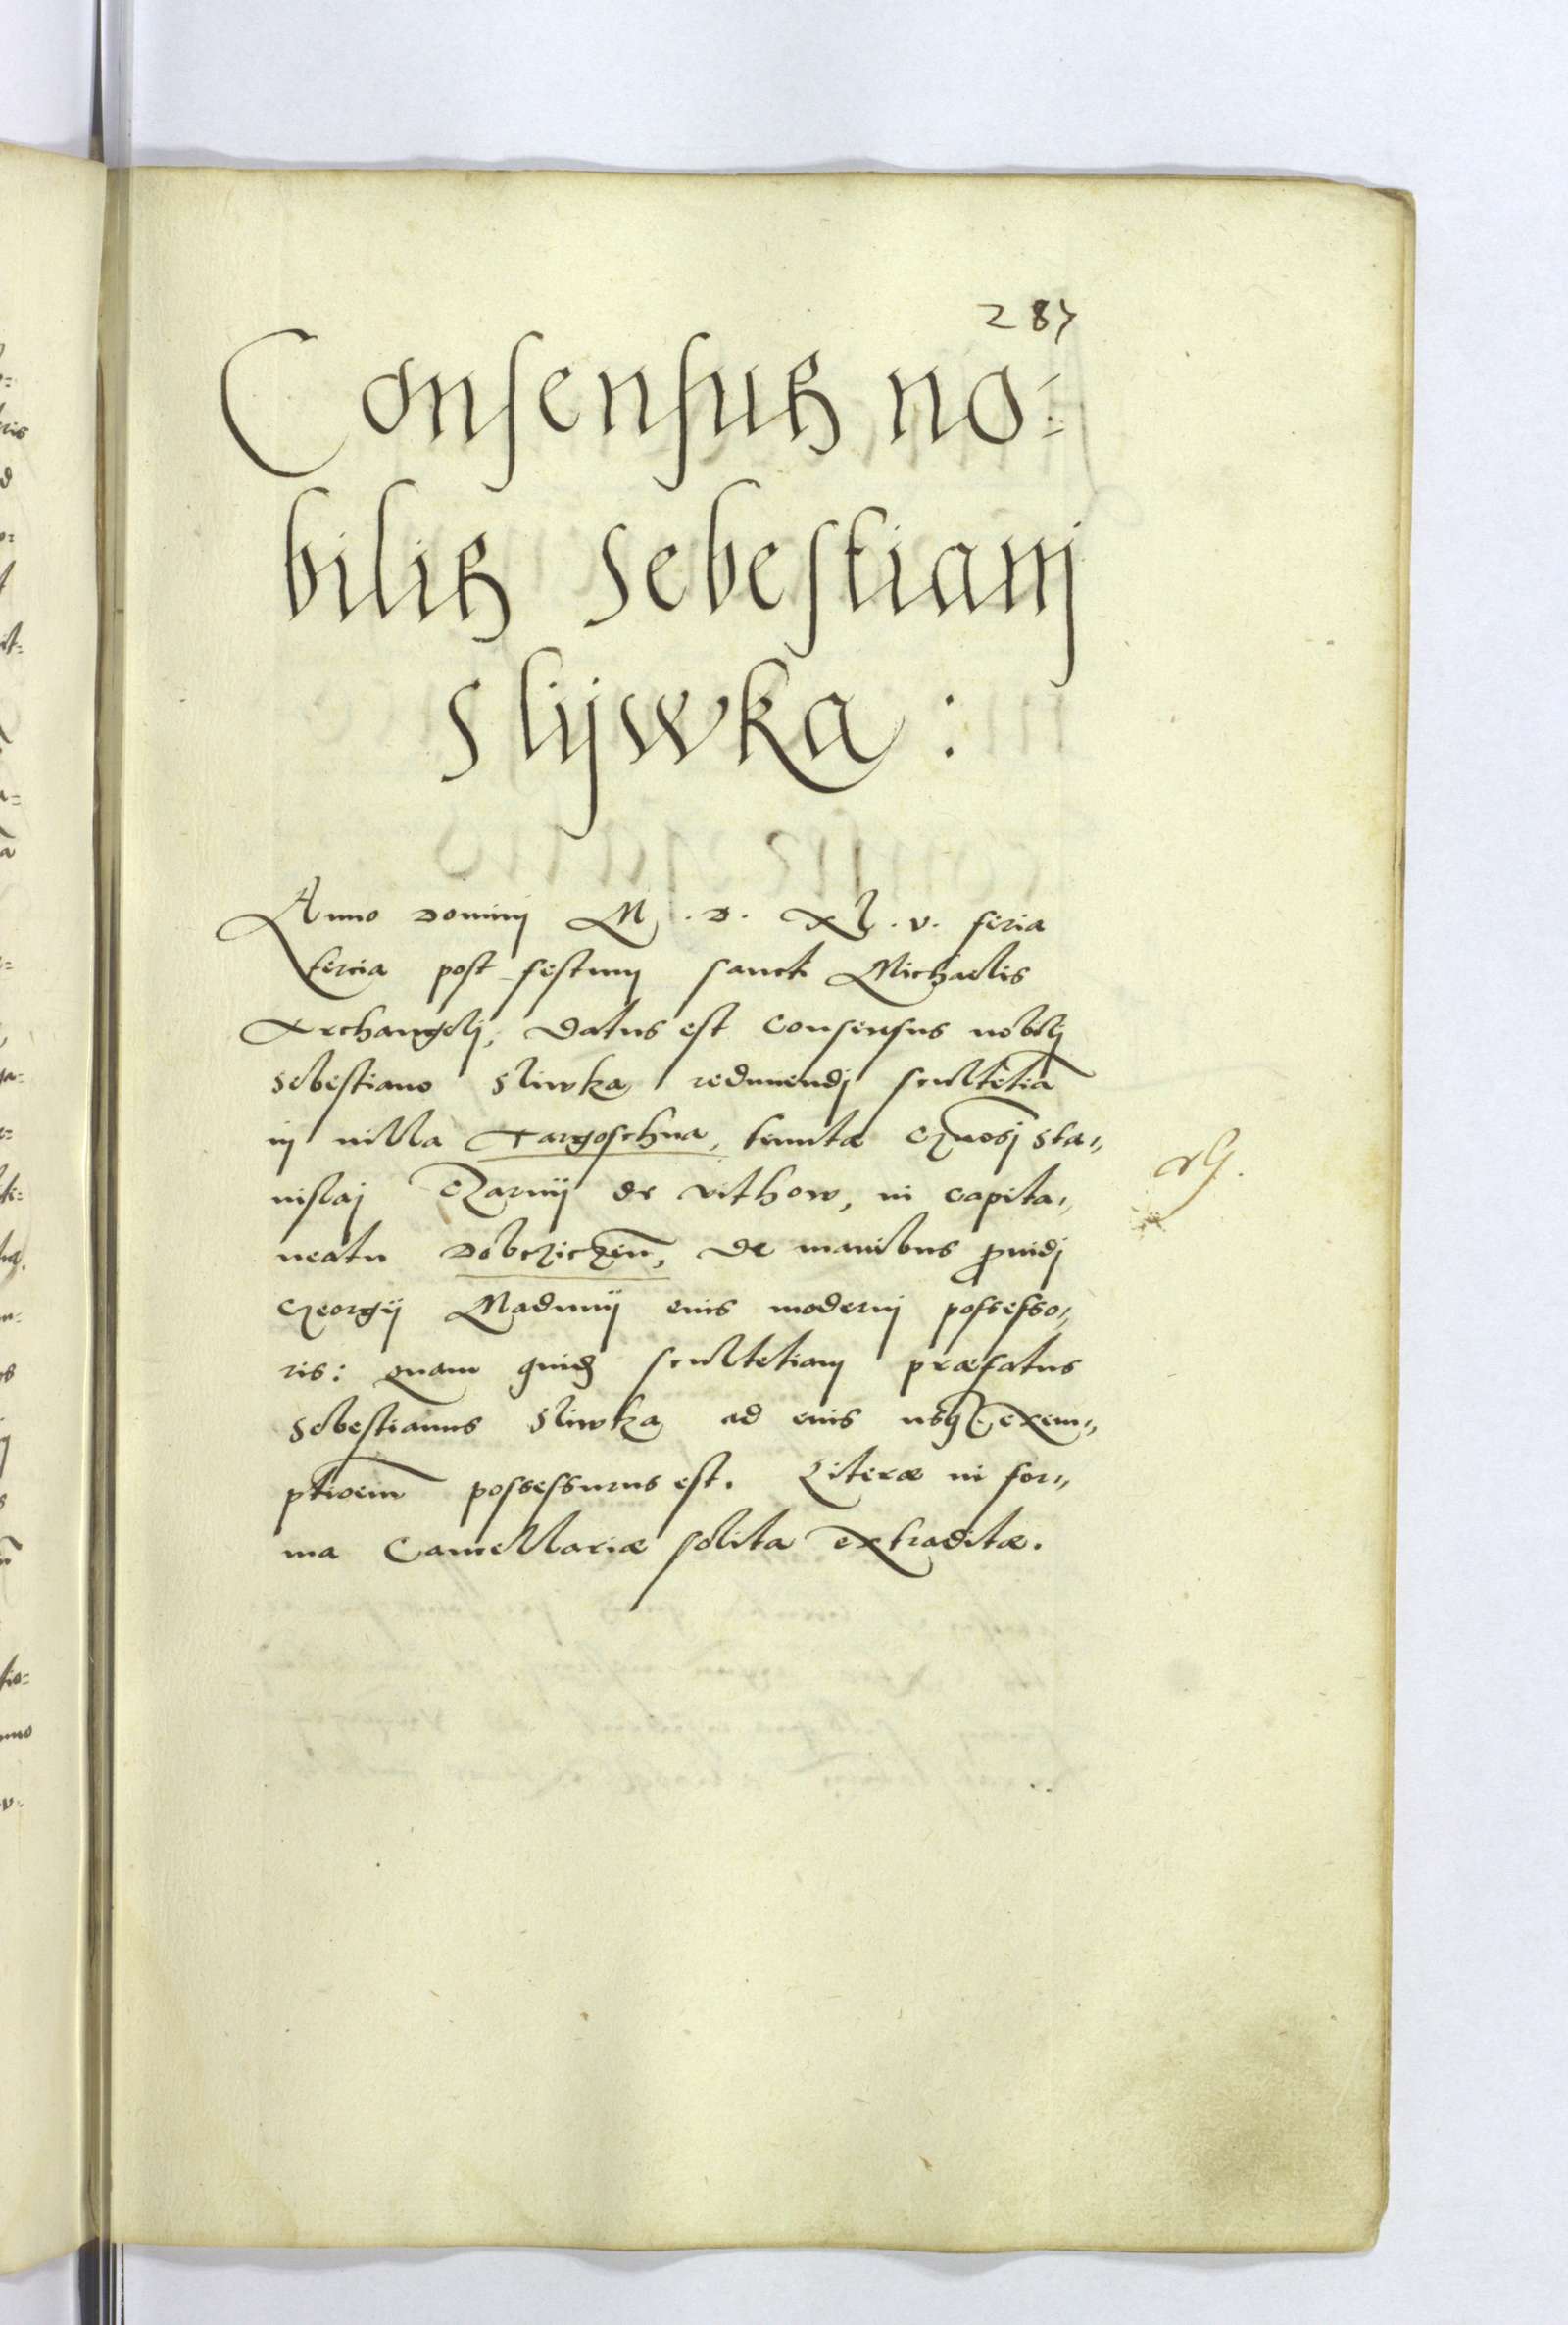 287
Consensus no=
bilis Sebestianj
Slijwka :
Anno dominj M . D . XL . v . feria
tercia post festum sancti Michaelis
Archangelj, datus est consensus nobilj
Sebestiano Sliwka redimendj scultetiã
in villa Targoschna, tenutæ Gnosj Sta„
nislaj Czarnij de vithow, in capita„
neatu Dobczicẽn, de manibus ꝓuidj
Georgij Madunij eius modernj possesso„
ris: quam quidẽ scultetiam præfatus
Sebestianus Sliwka ad eius usqꝫ exem„
ptioem̃ possessurus est. Literæ in for„
ma Cancellariæ solita extraditæ.